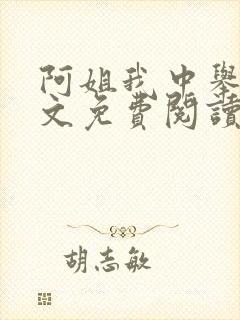 阿姐我中舉
文免費閱讀
胡志敏